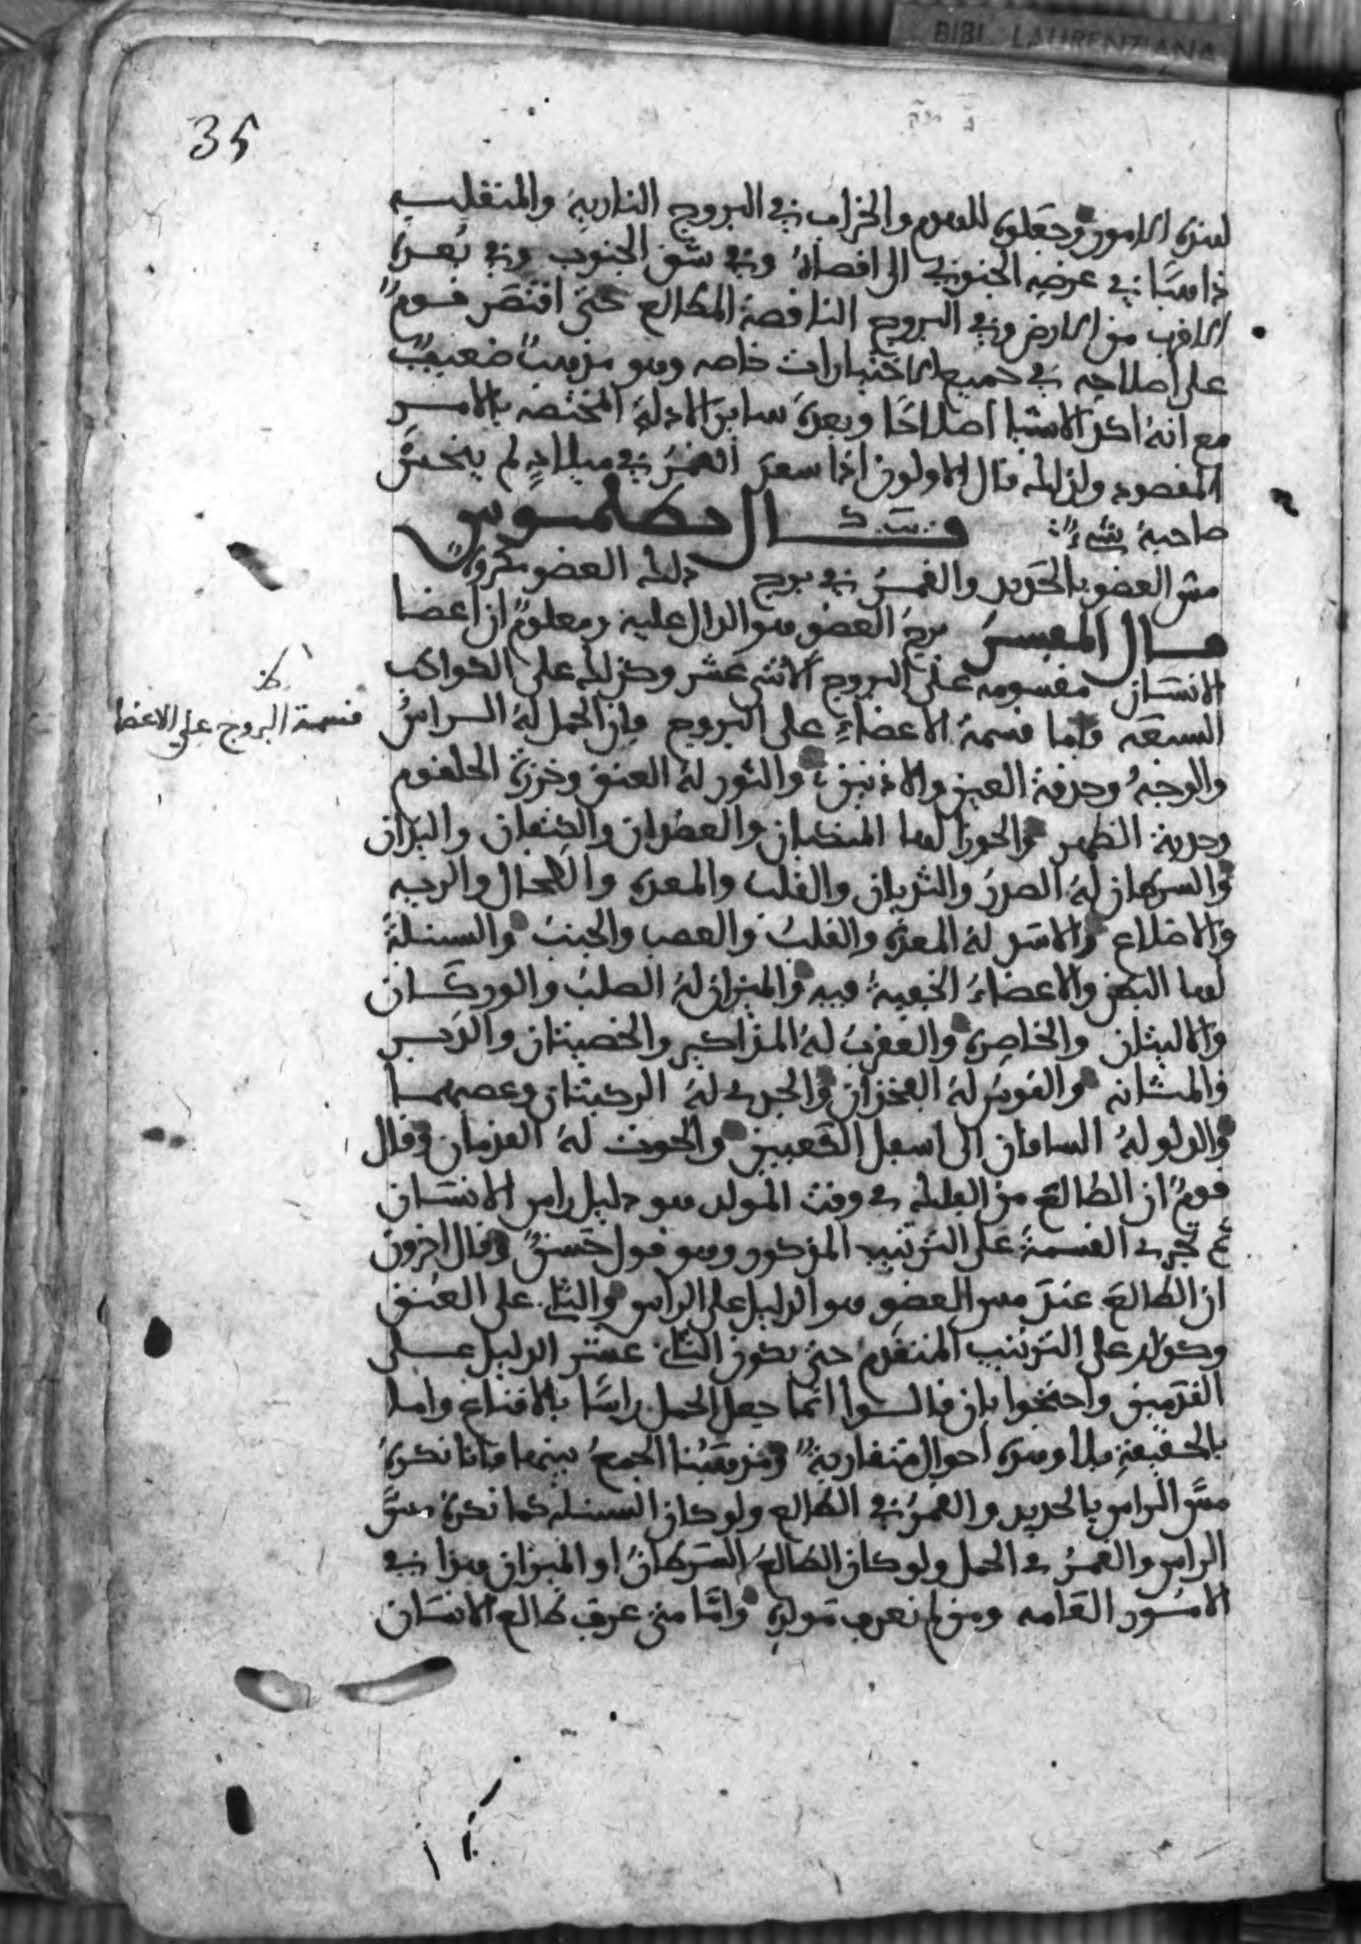 BIBL. LAURENZIANA
35
لهذه الامور وجعلوه للهدم والخراب في البروج النارية والمنقلبه
ذاهبا في عرضه الجنوبي الى اقصاه وفي شق الجنوب وفي بعده
الاقرب من الارض وفي البروج الناقصة المطالع حتى اقتصر قوم
على اصلاحه في جميع الاختيارات خاصه وهو مذهب ضعيف
مع انه اكد الاشيا اصلاحا وبعده ساير الادلة المختصه بالامر
المقصود ولذلك قال الاولون اذا سعد القمر في ميلاد لم ينحس
صاحبه شيء قال بطلميوس
مس العضو بالحديد والقمر في برج ذلك العضو مكروه
قال المفسر برج العضو هو الدال عليه ومعلوم ان اعضا
الانسان مقسومه على البروج الاثني عشر وكذلك على الكواكب
السبعه فاما قسمة الاعضاء على البروج فان الحمل له الراس
قسمة البروج علي الاعضا
والوجه وحدقة العين والاذنين والثور له العنق وخرزة الحلقوم
وحدبة الظهر والجوزا لها المنكبان والعضدان والكتفان واليدان
والسرطان له الصدر والثديان والقلب والمعده والطحال والريه
والاضلاع والاسد له المعدة والقلب والعصب والجنب والسنبلة
لها البطن والاعضاء الخفية فيه والميزان له الصلب والوركان
والاليتان والخاصره والعقرب له المذاكير والخصيتان والدبر
والمثانه والقوس له الفخذان والجدي له الركبتان وعصبهما
والدلو له الساقان الى اسفل الكعبين والحوت له القدمان وقال
قوم ان الطالع من الفلك في وقت المولد هو دليل راس الانسان
ثم تجري القسمة على الترتيب المذكور وهو قول حسن وقال اخرون
ان الطالع عند مس العضو هو الدليل على الراس والثاني على العنق
وكذلك على الترتيب المتقدم حتى يكون الثاني عشر الدليل على
القدمين واحتجوا بان قالوا انما جعل الحمل راسا بالاقناع واما
بالحقيقة فلا وهذه احوال متقاربة ومذهبنا الجمع بينهما فانا نكره
مس الراس بالحديد والقمر في الطالع ولو كان السنبله كما نكره مس
الراس والقمر في الحمل ولو كان الطالع السرطان او الميزان هذا في
الامور العامه ومن لم نعرف مولده واما من عرف طالع الانسان